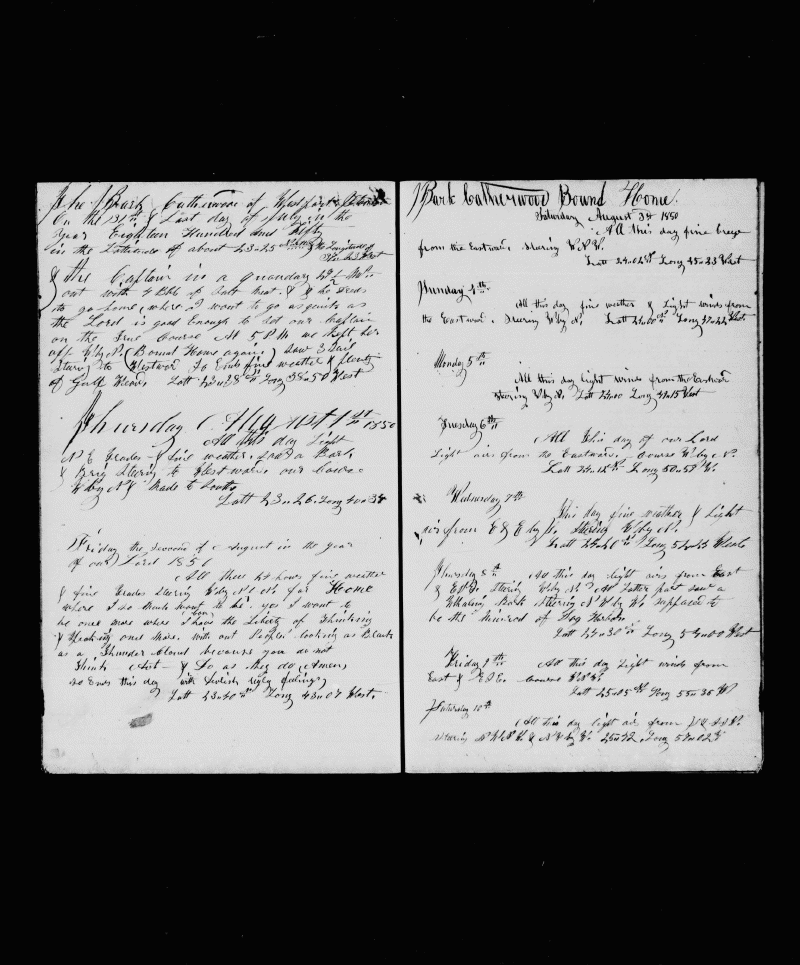 The Bark Catherwood of Westport
On the 31th & Last day of July in the
year Eighteen Hundred and Fifty
in the Lattitude of about 23=25 North & the Longitude of
& the Captain in a quandary
out with 4 Bbls of Salt Meat. & he needs
to go home, where I want to go as quick as
the Lord is good Enough to let our Captain
on the true Course At 5 P.M we kept her
off W by N. (Bound Home again) Saw 3 Sail
Stearing to Westward So Ends fine weather & plenty
of Gulf Weed. Latt 23=28 N Long 38=50 West
Thursday August 1st 1850
All this day Light
N.E Trades & fine weather, saw a Bark
& Brig Stearing to Westward. our Course
W by N &
Latt 23=26. Long 40=34
Friday the second of August in the year
of our Lord 1850
All these 24 hours fine weather
& fine Trades Stearing W by N for Home
where I so much want to be. yes I want to
be once more where I have the Liberty of thinking
& Speaking once more. with out People looking as Black
as a Thunder Cloud because you do not
think Act & Do as they do (Amen)
So Ends this day with feelings
Latt 23=40 N Long 43=07 West.
Bark Catherwood Bound Home.
Saturday August 3d 1850
All this day fine breeze
from the Eastward. Stearing W.N.W.
Latt 24=02 N Long 45=23 West
Sunday 4th
All this day fine weather & Light winds from
the Eastward. Stearing W by N. Latt 24=00 N Long West
Monday 5th
All this day light winds from the Eastward
Stearing W by N Latt Long 49=15 West
Tuesday 6th
All this day of our Lord
Light airs from the Eastward. Course W by N.
Latt 24=12 N Long 50=59 W.
Wednesday 7th
This day fine weather & Light
air from E & E by S. Stearing W by N.
Latt N Long West
Thursday 8th All this day light airs from East
& Stearing W by N. Latter part saw a
Whaling Bark Stearing N W by W. supposed to
be the Nimrod of Sag Harbor
Latt 24=30 N Long 54=00 West
Friday 9th All this day Light winds from
East & E.S.E. Course W.N.W.
Latt 25=05 N Long 55=36 W
Saturday 10th
All this day light air from
Stearing N.W. & N W by W. Long